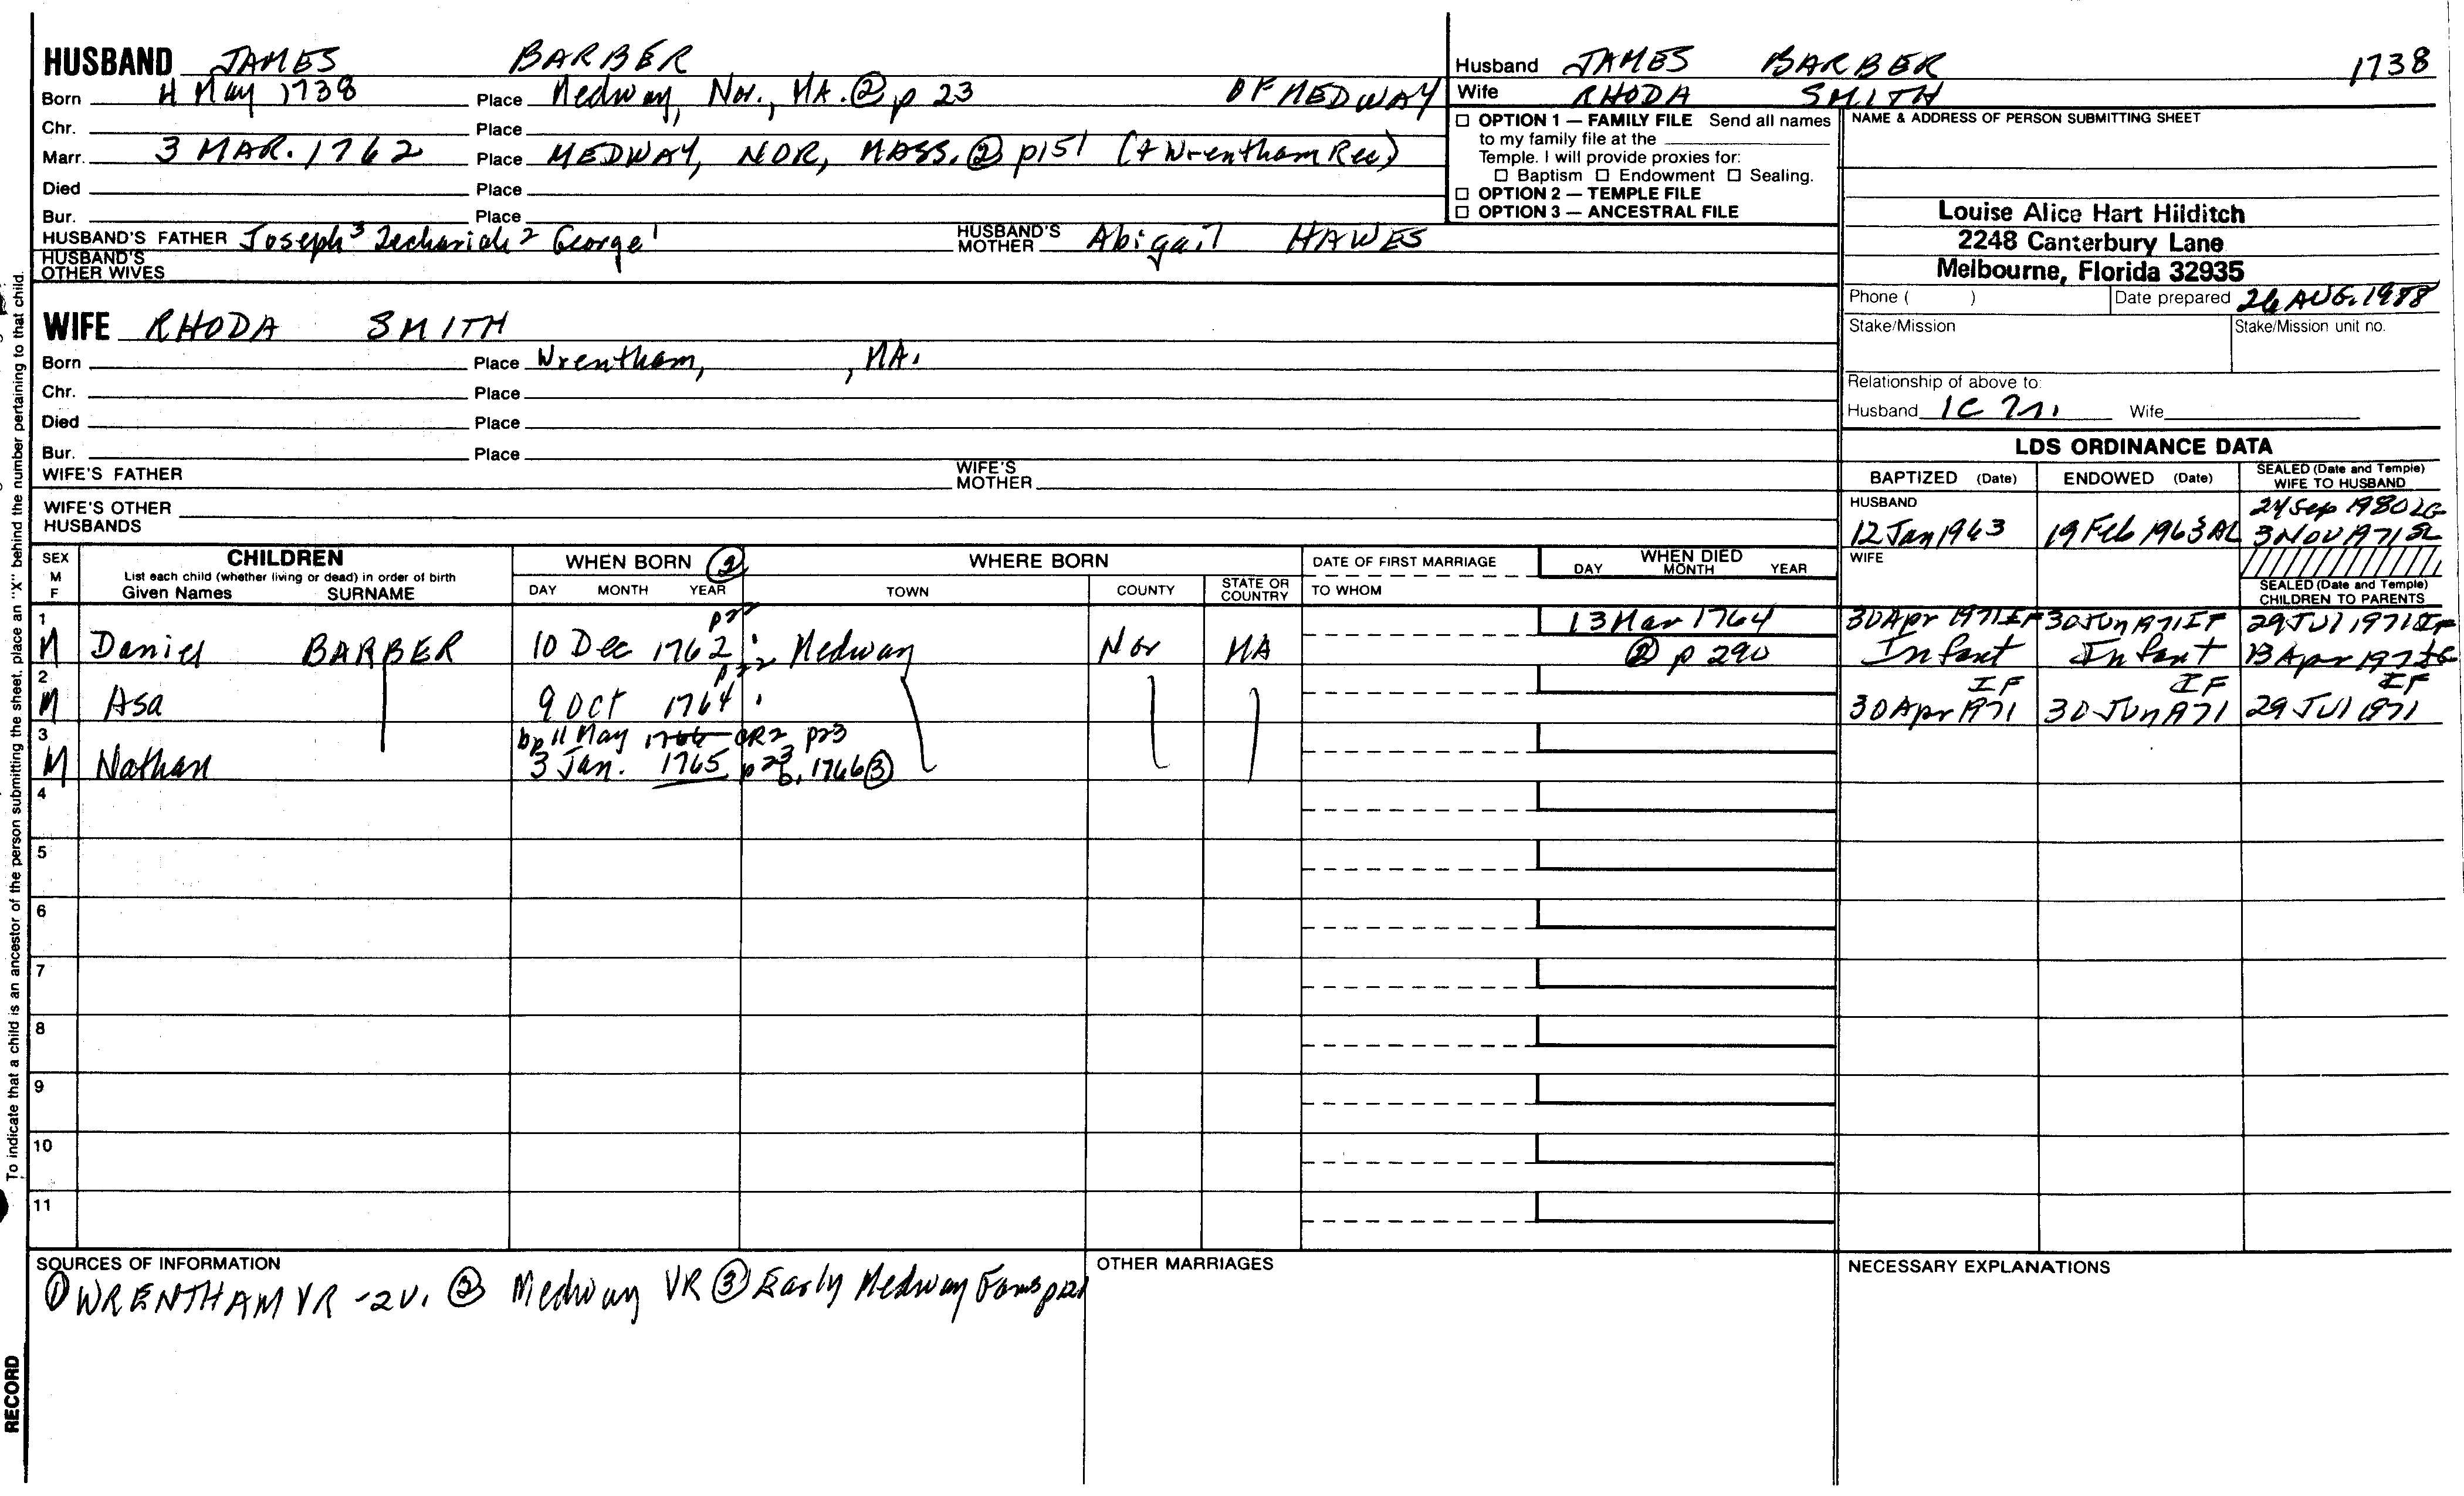 HUSBAND JAMES BARBER
Born 4 May 1738 Place Medway, Nor., MA. ② p 23 OF MEDWAY
Chr. Place
Marr. 3 MAR. 1762 Place MEDWAY, NOR, MASS. ② p151 (+ Wrentham Rec)
Died Place
Bur. Place
HUSBAND'S FATHER Joseph³ Zechariah² George¹ HUSBAND'S MOTHER Abigail HAWES
HUSBAND'S OTHER WIVES
WIFE RHODA SMITH
Born Place Wrentham, , MA.
Chr. Place
Died Place
Bur. Place
WIFE'S FATHER WIFE'S MOTHER
WIFE'S OTHER HUSBANDS
Husband JAMES BARBER 1738
Wife RHODA SMITH
☐ OPTION 1 — FAMILY FILE Send all names
to my family file at the
Temple. I will provide proxies for:
☐ Baptism ☐ Endowment ☐ Sealing.
☐ OPTION 2 — TEMPLE FILE
☐ OPTION 3 — ANCESTRAL FILE
NAME & ADDRESS OF PERSON SUBMITTING SHEET
Louise Alice Hart Hilditch
2248 Canterbury Lane
Melbourne, Florida 32935
Phone ( ) Date prepared 26 AUG. 1988
Stake/Mission Stake/Mission unit no.
Relationship of above to:
Husband 1C Wife
LDS ORDINANCE DATA
BAPTIZED (Date) ENDOWED (Date) SEALED (Date and Temple) WIFE TO HUSBAND
HUSBAND 24 Sep 1980 LG
12 Jan 1963 19 Feb 1963 AL 3 NOV 1971 SL
WIFE
SEALED (Date and Temple) CHILDREN TO PARENTS
SEX M F CHILDREN WHEN BORN ② WHERE BORN DATE OF FIRST MARRIAGE WHEN DIED
List each child (whether living or dead) in order of birth
Given Names SURNAME DAY MONTH YEAR TOWN COUNTY STATE OR COUNTRY TO WHOM DAY MONTH YEAR
1 p22 13 Mar 1764 30 Apr 1971 IF 30 Jun 1971 IF 29 Jul 1971 IF
M Daniel BARBER 10 Dec 1762 Medway Nor MA ② p 290 Infant Infant 13 Apr
2 p22 IF IF IF
M Asa 9 Oct 1764 30 Apr 1971 30 Jun 1971 29 Jul 1971
3 bp 11 May 1766 CR2 p23
M Nathan 3 Jan. 1765 p 23 b. 1766 ③
4
5
6
7
8
9
10
11
SOURCES OF INFORMATION
① WRENTHAM VR - 2v. ② Medway VR ③ Early Medway Fams p121
OTHER MARRIAGES
NECESSARY EXPLANATIONS
To indicate that a child is an ancestor of the person submitting the sheet, place an "X" behind the number pertaining to that child.
RECORD